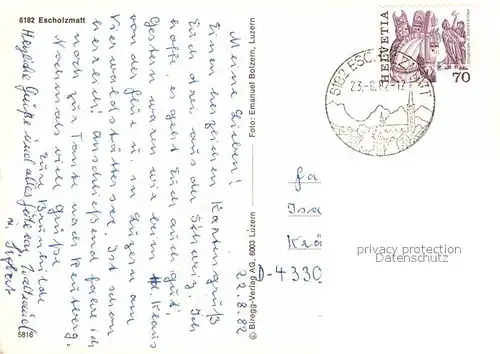 6182 Escholzmatt
22.8.82
Meine Lieben!
Einen herzlichen Kartengruß
Euch drei aus der Schweiz. Ich
hoffe, es geht Euch auch gut.
Gestern waren wir beim Klaus
von der Flüe u. in Luzern am
Vierwaldstättersee. Ist schon
herrlich! Anschließend fahre ich
noch zur Tante nach
Nochmals viele Grüße
Eure Brunhilde
Herzliche Grüße und alles Gute
u.
5816
© Biregg-Verlag AG, 6003 Luzern
Foto: Emanuel Bolzern, Luzern
HELVETIA
70
6182 ESCHOLZMATT
23.-8.82-17
Isa
D-4330
privacy protection
Datenschutz